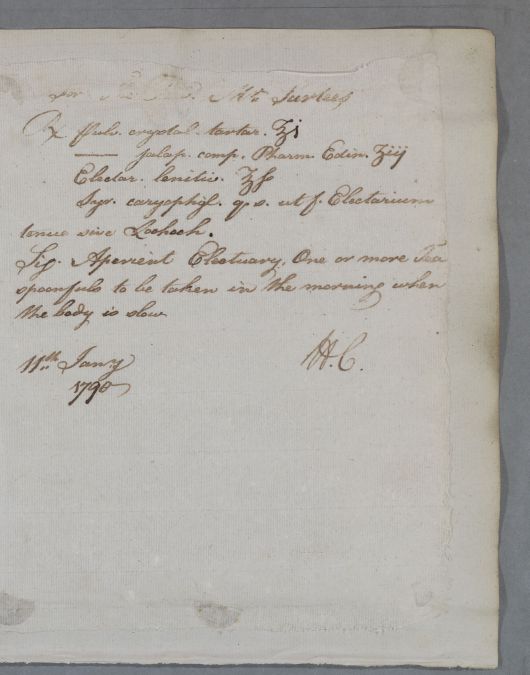 for Mr. Surtees
℞ Pulv. crystal. tartar. ℥j
—— jalap. comp. Pharm. Edin. ʒiij
Electar. lenitiv. ℥ſs
Syr. caryophyl. q. s. ut f. Electarium
tenue sive Lohoch.
Sig. Aperient Electuary, One or more Tea
spoonfuls to be taken in the morning when
the body is slow
11th. Jany H. C.
1790